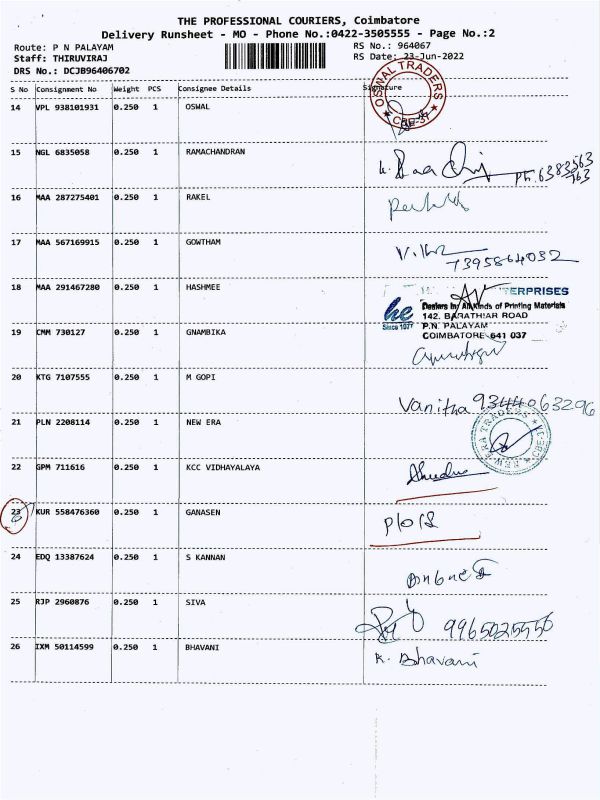 THE PROFESSIONAL COURIERS, Coimbatore
Delivery Runsheet - MO - Phone No.:0422-3505555 - Page No.:2
Route: P N PALAYAM RS No.: 964067
Staff: THIRUVIRAJ RS Date: 23-Jun-2022
DRS No.: DCJB96406702
S No Consignment No Weight PCS Consignee Details Signature
OSWAL TRADERS CBE-37
14 VPL 938101931 0.250 1 OSWAL
15 NGL 6835058 0.250 1 RAMACHANDRAN
Ph: 6383563
763
16 MAA 287275401 0.250 1 RAKEL
17 MAA 567169915 0.250 1 GOWTHAM
7395864032
18 MAA 291467280 0.250 1 HASHMEE
ERPRISES
he Dealers In: All Kinds of Printing Materials
142. BARATHIAR ROAD
Since 1977 P.N. PALAYAM
COIMBATORE - 641 037
19 CMM 730127 0.250 1 GNAMBIKA
20 KTG 7107555 0.250 1 M GOPI
Vanitha 9344063296
21 PLN 2208114 0.250 1 NEW ERA
NEW ERA TRADERS
22 GPM 711616 0.250 1 KCC VIDHAYALAYA
23 KUR 558476360 0.250 1 GANASEN
24 EDQ 13387624 0.250 1 S KANNAN
25 RJP 2960876 0.250 1 SIVA
9965025550
26 IXM 50114599 0.250 1 BHAVANI
K. Bhavani